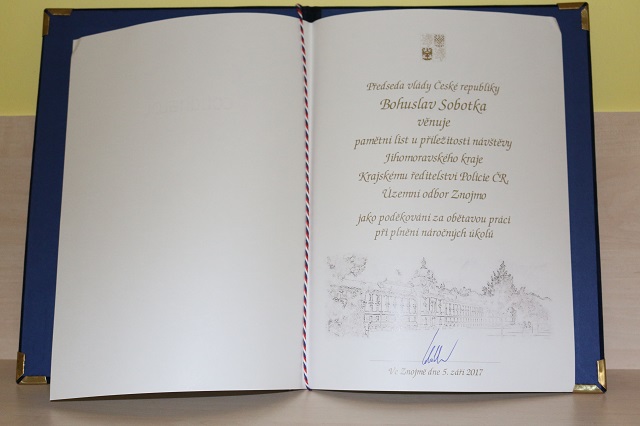 Předseda vlády České republiky
Bohuslav Sobotka
věnuje
pamětní list u příležitosti návštěvy
Jihomoravského kraje
Krajskému ředitelství Policie ČR,
Územní odbor Znojmo
jako poděkování za obětavou práci
při plnění náročných úkolů
Ve Znojmě dne 5. září 2017